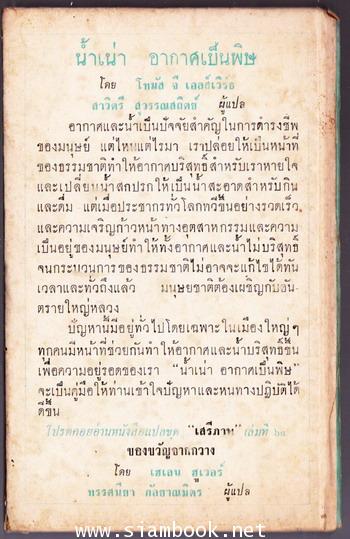 น้ำเน่า อากาศเป็นพิษ
โดย โทมัส จี เอลล์สเวิร์ธ
สาวิตรี สุวรรณสถิตย์ ผู้แปล
อากาศและน้ำเป็นปัจจัยสำคัญในการดำรงชีพ
ของมนุษย์ แต่ไหนแต่ไรมา เราปล่อยให้เป็นหน้าที่
ของธรรมชาติทำให้อากาศบริสุทธิ์สำหรับเราหายใจ
และเปลี่ยนน้ำสกปรกให้เป็นน้ำสะอาดสำหรับกิน
และดื่ม แต่เมื่อประชากรทั่วโลกทวีขึ้นอย่างรวดเร็ว
และความเจริญก้าวหน้าทางอุตสาหกรรมและความ
เป็นอยู่ของมนุษย์ทำให้ทั้งอากาศและน้ำไม่บริสุทธิ์
จนกระบวนการของธรรมชาติไม่อาจจะแก้ไขได้ทัน
เวลาและทั่วถึงแล้ว มนุษยชาติต้องเผชิญกับอัน-
ตรายใหญ่หลวง
ปัญหานี้มีอยู่ทั่วไปโดยเฉพาะในเมืองใหญ่ๆ
ทุกคนมีหน้าที่ช่วยกันทำให้อากาศและน้ำบริสุทธิ์ขึ้น
เพื่อความอยู่รอดของเรา "น้ำเน่า อากาศเป็นพิษ"
จะเป็นคู่มือให้ท่านเข้าใจปัญหาและหนทางปฏิบัติได้
ดีขึ้น
โปรดคอยอ่านหนังสือแปลชุด "เสรีภาพ" เล่มที่
ของขวัญจากกวาง
โดย เฮเลน ฮูเวอร์
ทรรศนียา กัลยาณมิตร ผู้แปล
www.siambook.net